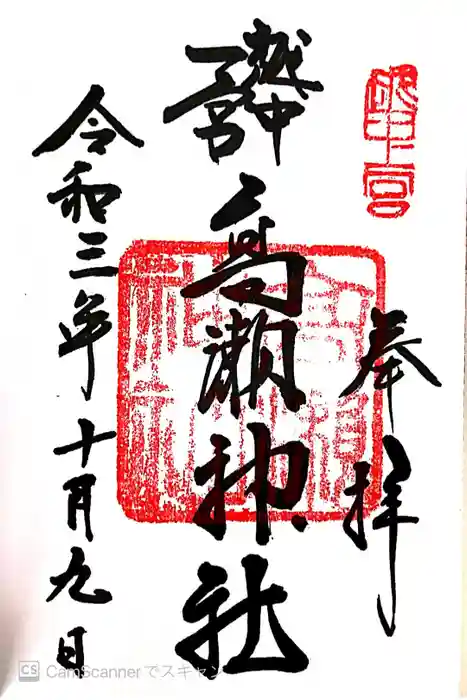 奉拝
越中
一宮
高瀬神社
高瀬神社
令和三年十月九日
CS CamScannerでスキャン